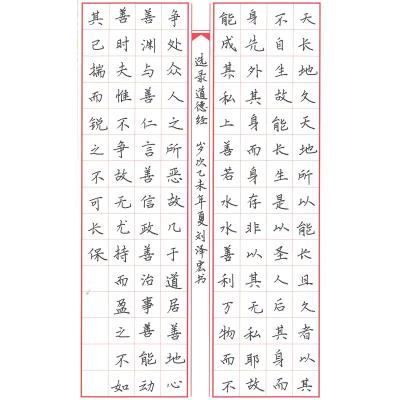 天长地久天地所以能长且久者以其
不自生故能长生是以圣人后其身而
身先外其身而身存非以其无私耶故
能成其私上善若水水善利万物而不
选录道德经 岁次乙未年夏刘泽宏书
争处众人之所恶故几于道居善地心
善渊与善仁言善信政善治事善能动
善时夫惟不争故无尤持而盈之不如
其己揣而锐之不可长保